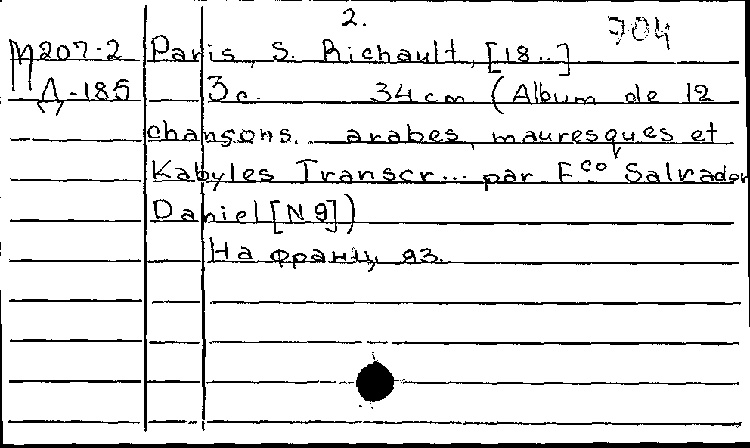 2.
704
М207-2 Paris, S. Richault, [18..]
Д-185 3 с. 34 cm (Album de 12
chansons arabes, mauresques et
Kabyles Transcr... par Fco Salvador
Daniel [N 9])
На франц. яз.